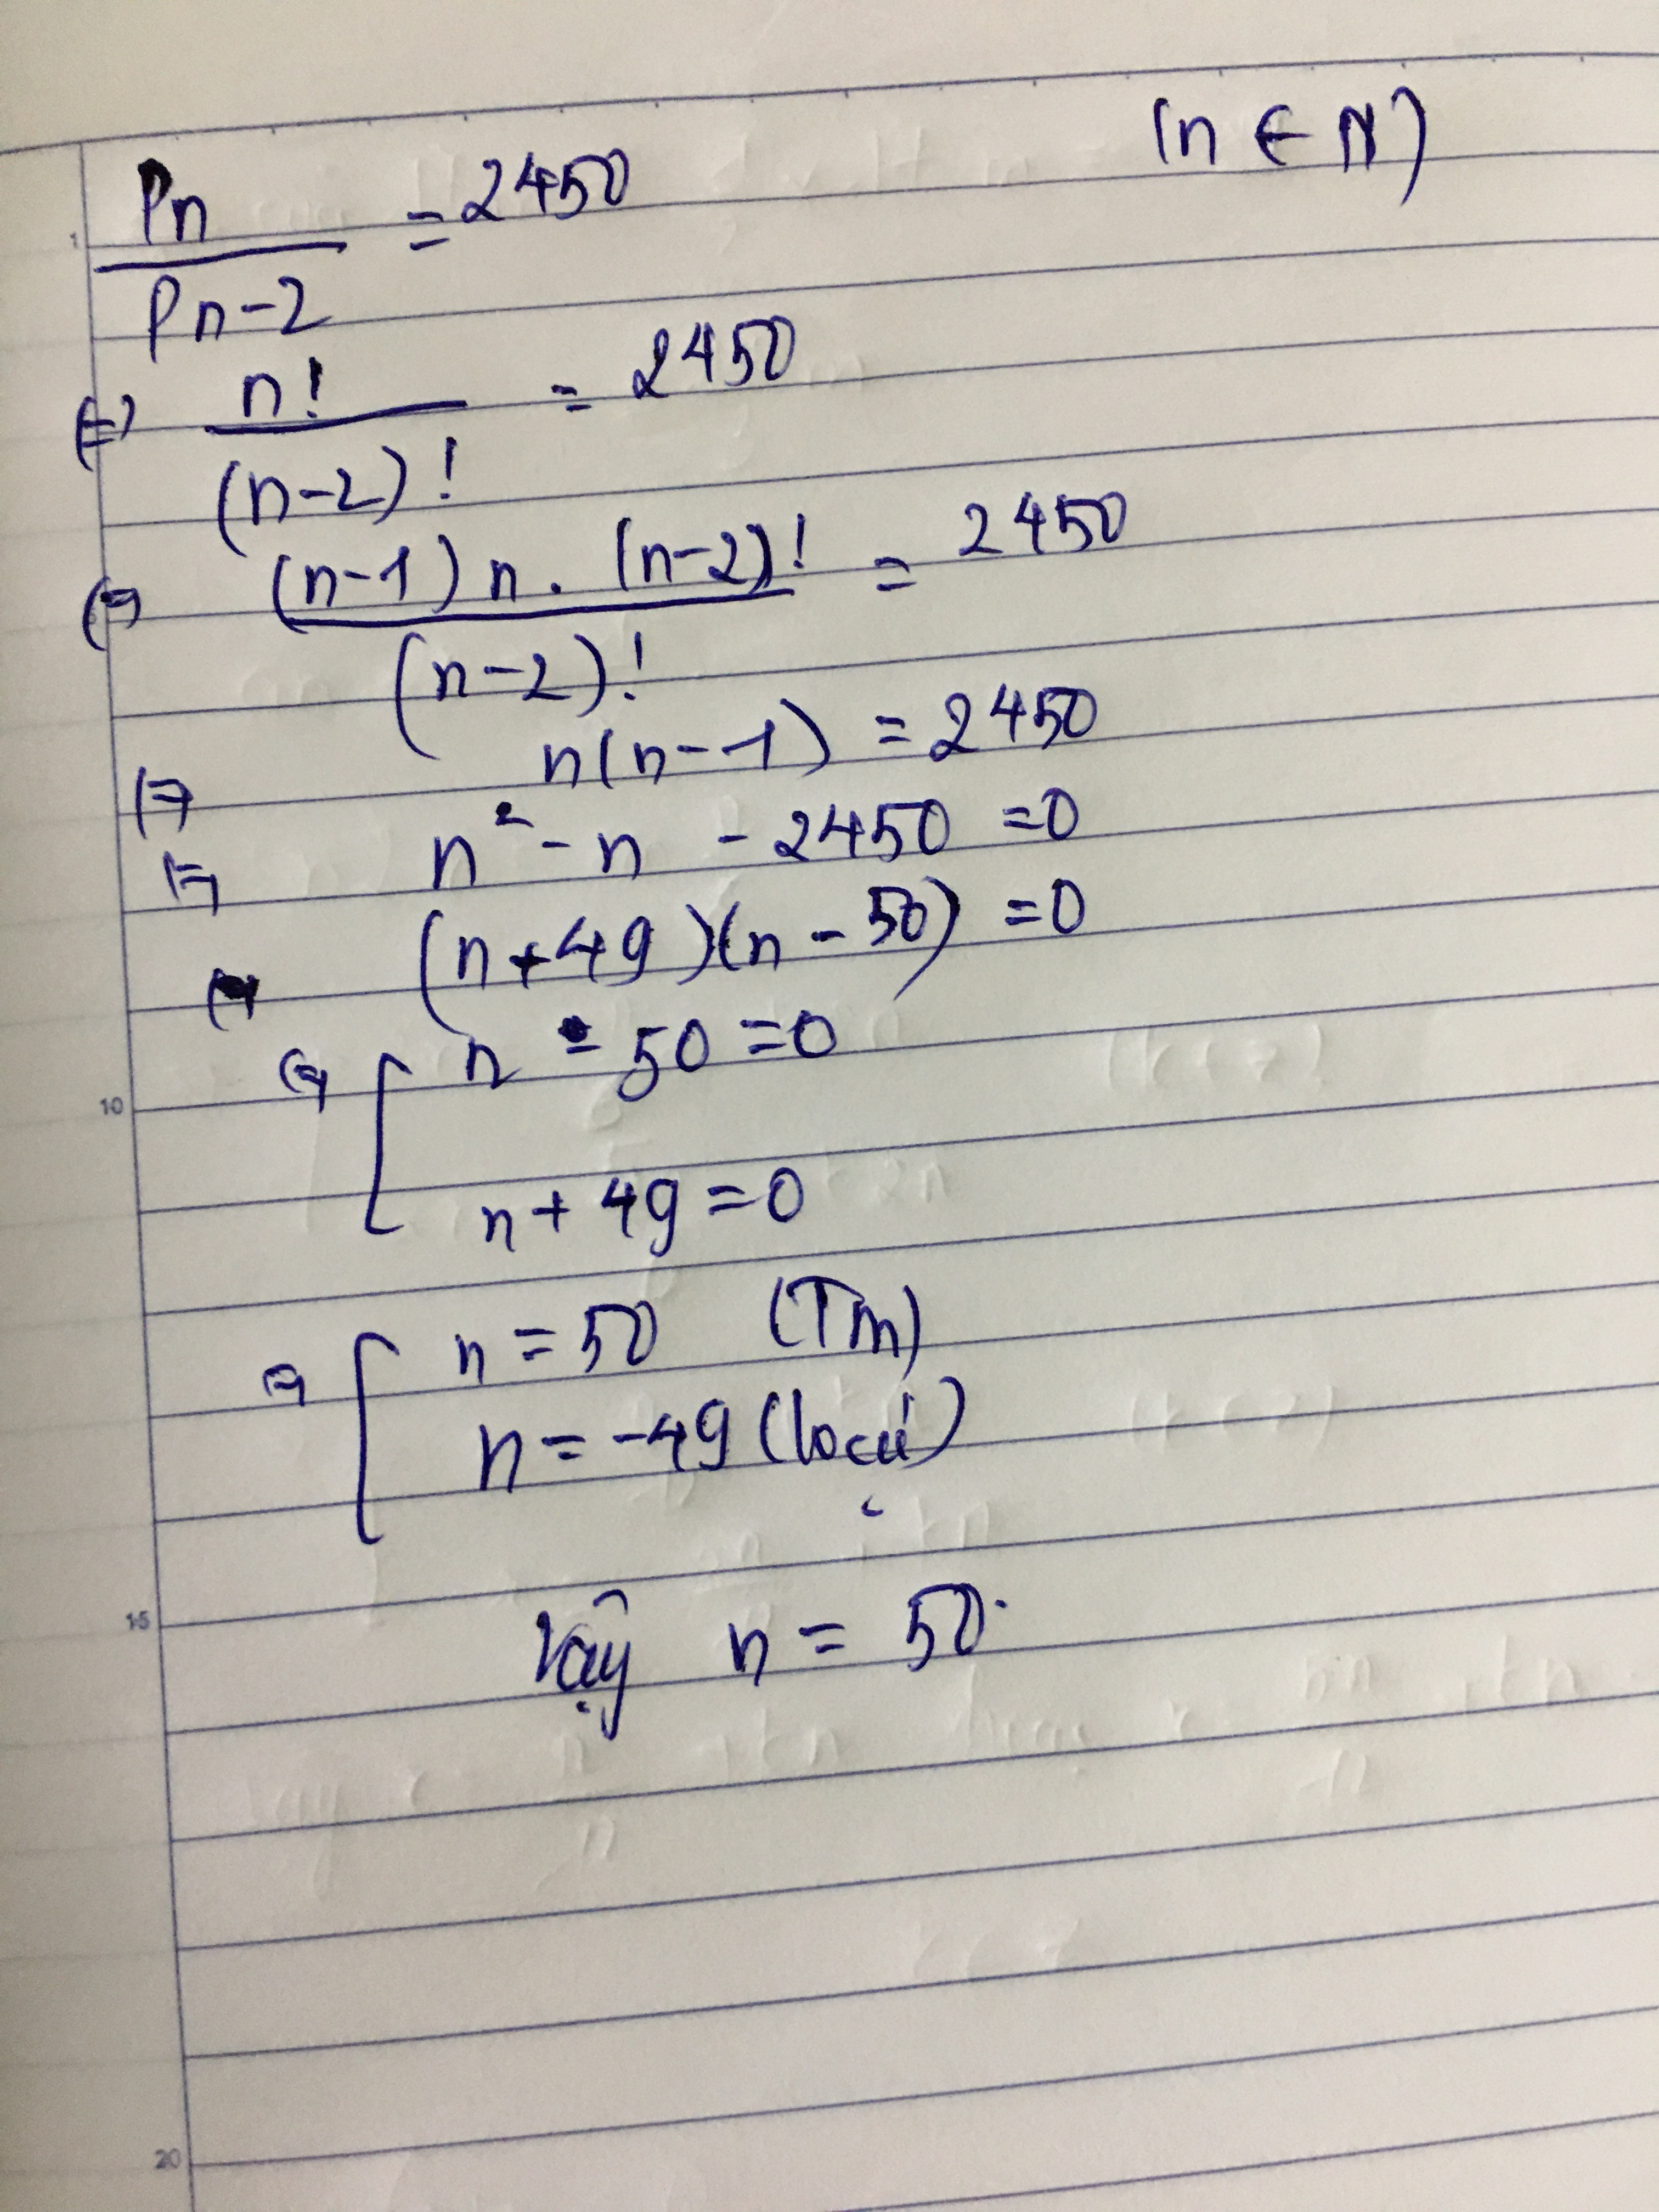 (n ∈ N)
Pn / Pn-2 = 2450
(=) n! / (n-2)! = 2450
(=) (n-1) n . (n-2)! / (n-2)! = 2450
(=) n(n-1) = 2450
(=) n² - n - 2450 = 0
(=) (n+49)(n-50) = 0
(=) [ n - 50 = 0
n + 49 = 0
=) [ n = 50 (Tm)
n = -49 (loại)
Vậy n = 50.
1
10
15
20